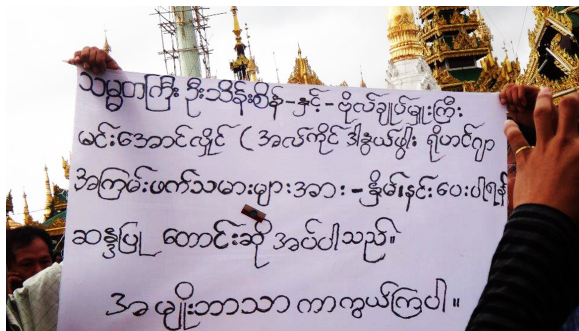 သမ္မတကြီး ဦးသိန်းစိန် - နှင့် - ဗိုလ်ချုပ်မှူးကြီး
မင်းအောင်လှိုင် ( အလ်ကိုင်ဒါနွယ်ဖွါး ရိုဟင်ဂျာ
အကြမ်းဖက်သမားများအား - နှိမ်နင်းပေးပါရန်
ဆန္ဒပြု တောင်းဆို အပ်ပါသည်။
အမျိုးဘာသာ ကာကွယ်ကြပါ ။